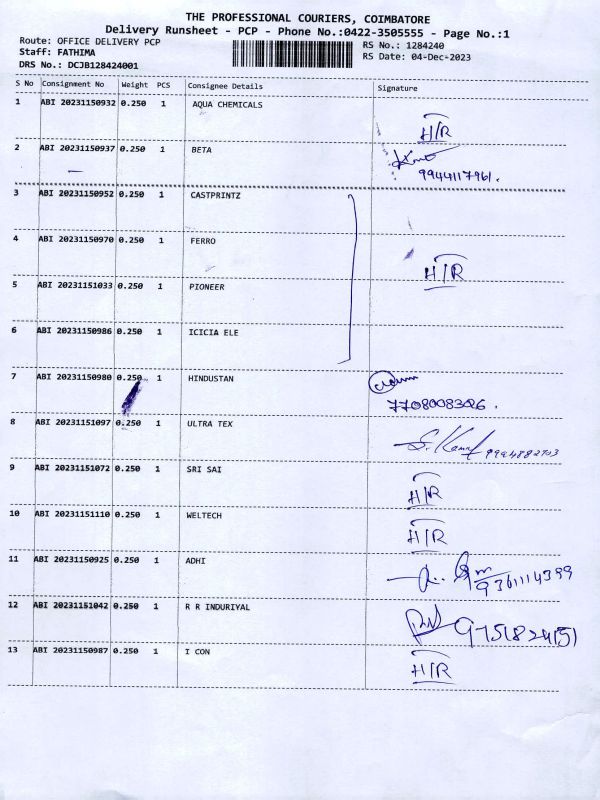 THE PROFESSIONAL COURIERS, COIMBATORE
Delivery Runsheet - PCP - Phone No.:0422-3505555 - Page No.:1
Route: OFFICE DELIVERY PCP
RS No.: 1284240
Staff: FATHIMA
RS Date: 04-Dec-2023
DRS No.: DCJB128424001
S No Consignment No Weight PCS Consignee Details Signature
1 ABI 20231150932 0.250 1 AQUA CHEMICALS
H/R
2 ABI 20231150937 0.250 1 BETA
9944117961.
3 ABI 20231150952 0.250 1 CASTPRINTZ
4 ABI 20231150970 0.250 1 FERRO
H/R
5 ABI 20231151033 0.250 1 PIONEER
6 ABI 20231150986 0.250 1 ICICIA ELE
7 ABI 20231150980 0.250 1 HINDUSTAN
7708008326.
8 ABI 20231151097 0.250 1 ULTRA TEX
9 ABI 20231151072 0.250 1 SRI SAI
H/R
10 ABI 20231151110 0.250 1 WELTECH
H/R
11 ABI 20231150925 0.250 1 ADHI
9361114399
12 ABI 20231151042 0.250 1 R R INDURIYAL
9751824151
13 ABI 20231150987 0.250 1 I CON
H/R